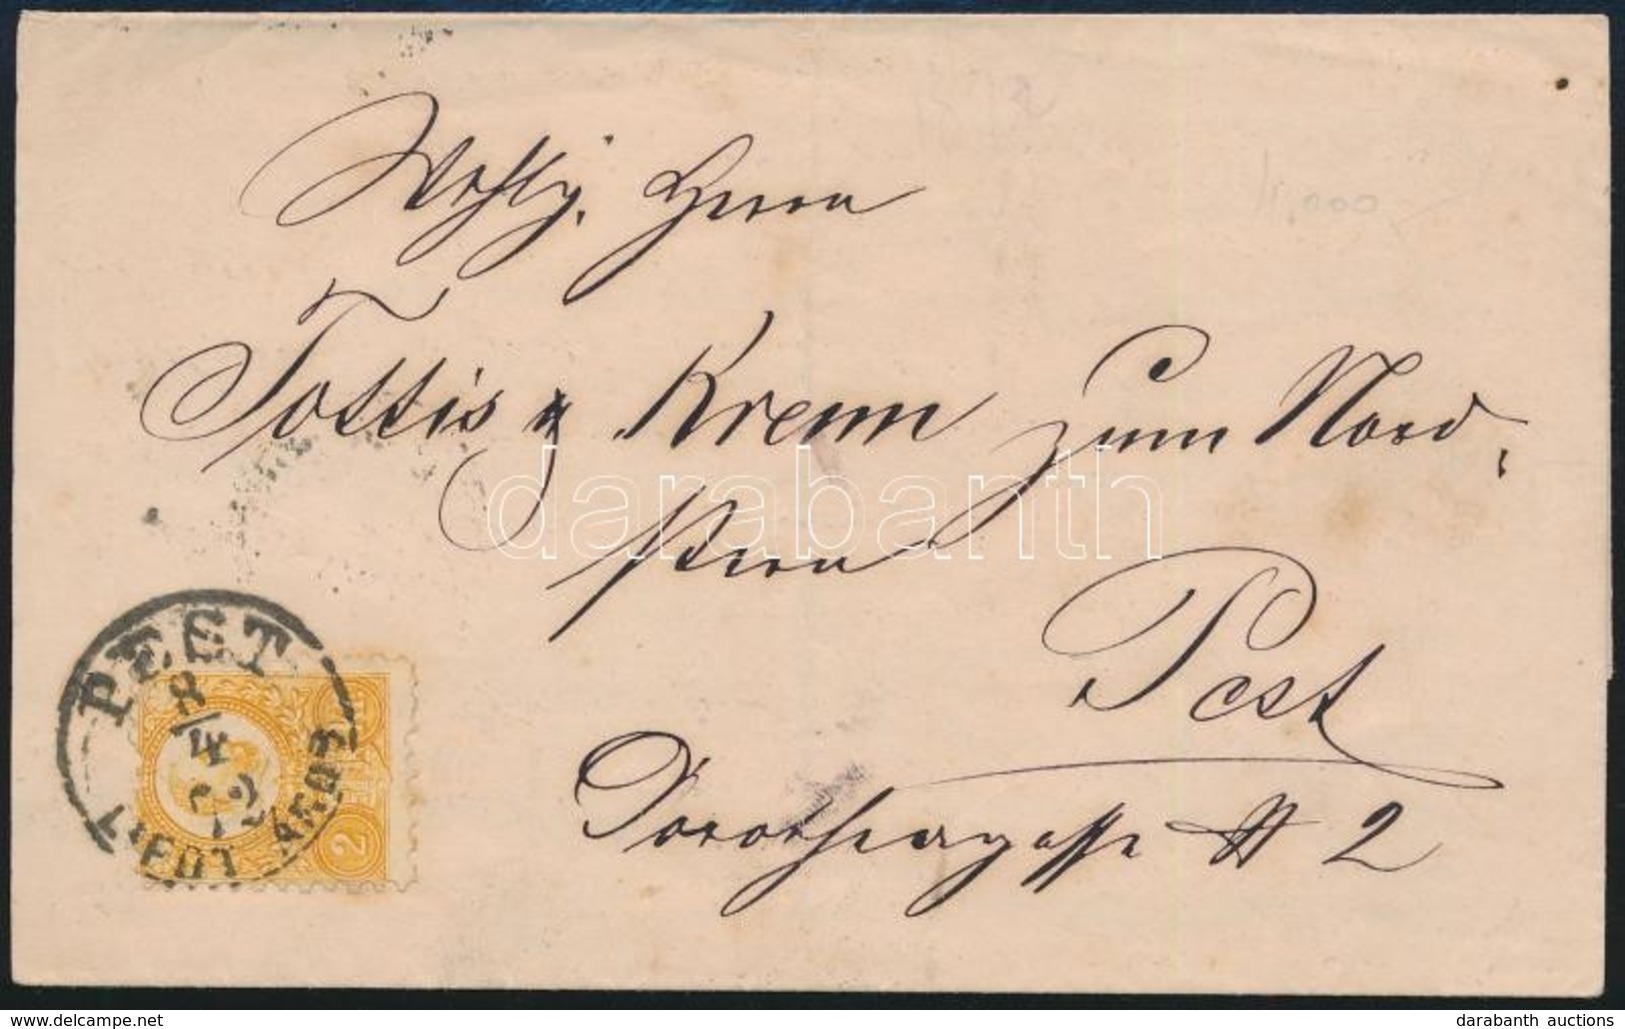 11.000
Wohlg. Herrn
Tottis & Krenn zum Nord-
stern
Pest
Dorotheergasse № 2
PEST
8/4
72
2
darabanth
delcampe.net
darabanth auctions